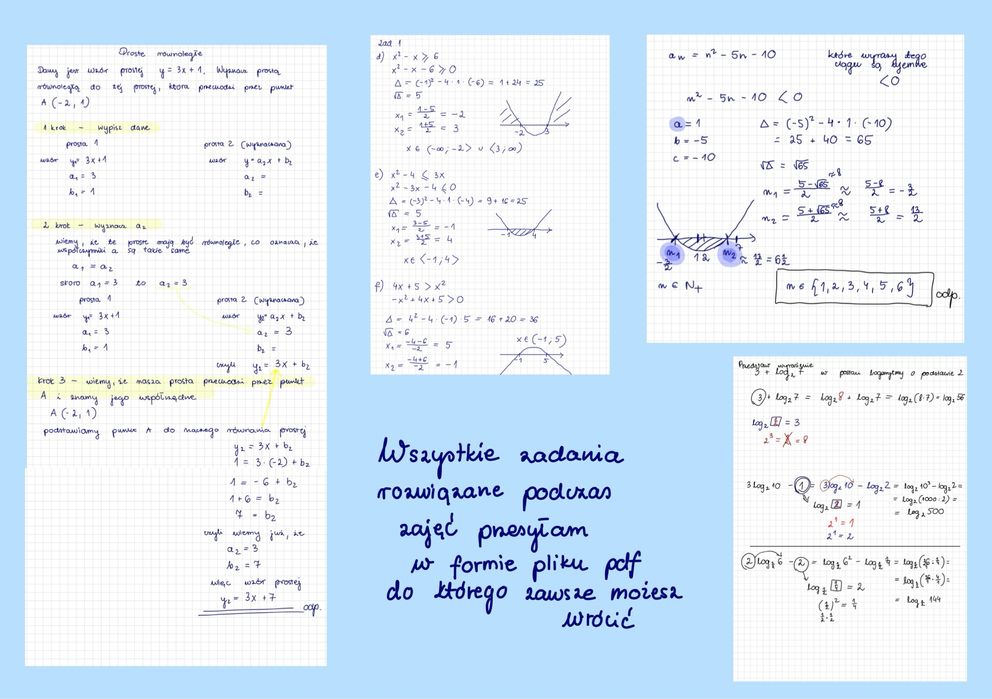 Proste równoległe
Dany jest wzór prostej y = 3x + 1. Wyznacz prostą
równoległą do tej prostej, która przechodzi przez punkt
A (-2, 1)
1 krok - wypisz dane
prosta 1 prosta 2 (wyznaczana)
wzór y = 3x+1 wzór y = a₂x + b₂
a₁ = 3 a₂ =
b₁ = 1 b₂ =
2 krok - wyznacz a₂
wiemy, że te proste mają być równoległe, co oznacza, że
współczynniki a są takie same
a₁ = a₂
skoro a₁ = 3 to a₂ = 3
prosta 1 prosta 2 (wyznaczana)
wzór y = 3x+1 wzór y = a₂x + b₂
a₁ = 3 a₂ = 3
b₁ = 1 b₂ =
czyli y₂ = 3x + b₂
krok 3 - wiemy, że nasza prosta przechodzi przez punkt
A i znamy jego współrzędne
A (-2, 1)
podstawiamy punkt A do naszego równania prostej
y₂ = 3x + b₂
1 = 3·(-2) + b₂
1 = -6 + b₂
1+6 = b₂
7 = b₂
czyli wiemy już, że
a₂ = 3
b₂ = 7
więc wzór prostej
y₂ = 3x + 7 odp.
zad. 1
d) x² - x ⩾ 6
x² - x - 6 ⩾ 0
Δ = (-1)² - 4·1·(-6) = 1 + 24 = 25
√Δ = 5
x₁ = (1-5)/2 = -2
x₂ = (1+5)/2 = 3
-2 3
x ∈ (-∞; -2> ∪ <3; ∞)
e) x² - 4 ⩽ 3x
x² - 3x - 4 ⩽ 0
Δ = (-3)² - 4·1·(-4) = 9 + 16 = 25
√Δ = 5
x₁ = (3-5)/2 = -1
x₂ = (3+5)/2 = 4
-1 4
x ∈ <-1; 4>
f) 4x + 5 > x²
-x² + 4x + 5 > 0
Δ = 4² - 4·(-1)·5 = 16 + 20 = 36
√Δ = 6
x₁ = (-4-6)/-2 = 5
x₂ = (-4+6)/-2 = -1
x ∈ (-1; 5)
-1 5
aₙ = n² - 5n - 10 które wyrazy tego
ciągu są ujemne
< 0
n² - 5n - 10 < 0
a = 1 Δ = (-5)² - 4·1·(-10)
b = -5 = 25 + 40 = 65
c = -10
√Δ = √65
n₁ = (5-√65)/2 ≈ (5-8)/2 = -3/2
≈8
n₂ = (5+√65)/2 ≈ (5+8)/2 = 13/2
≈8
n₁ 1 2 7 n₂
-3/2 ≈ 13/2 = 6½
n ∈ N₊
n ∈ {1, 2, 3, 4, 5, 6} odp.
Przedstaw wyrażenie
3 + log₂7 w postaci logarytmu o podstawie 2
3 + log₂7 = log₂8 + log₂7 = log₂(8·7) = log₂56
log₂8 = 3
2³ = 8
3log₂10 - 1 = 3log₂10 - log₂2 = log₂10³ - log₂2 =
= log₂(1000:2) =
= log₂500
log₂2 = 1
2¹ = 2
Wszystkie zadania
rozwiązane podczas
zajęć przesyłam
w formie pliku pdf
do którego zawsze możesz
wrócić